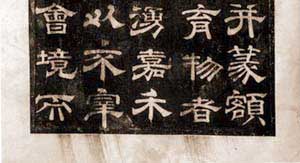 并篆額
育物者
湧嘉禾
以不宰
會境